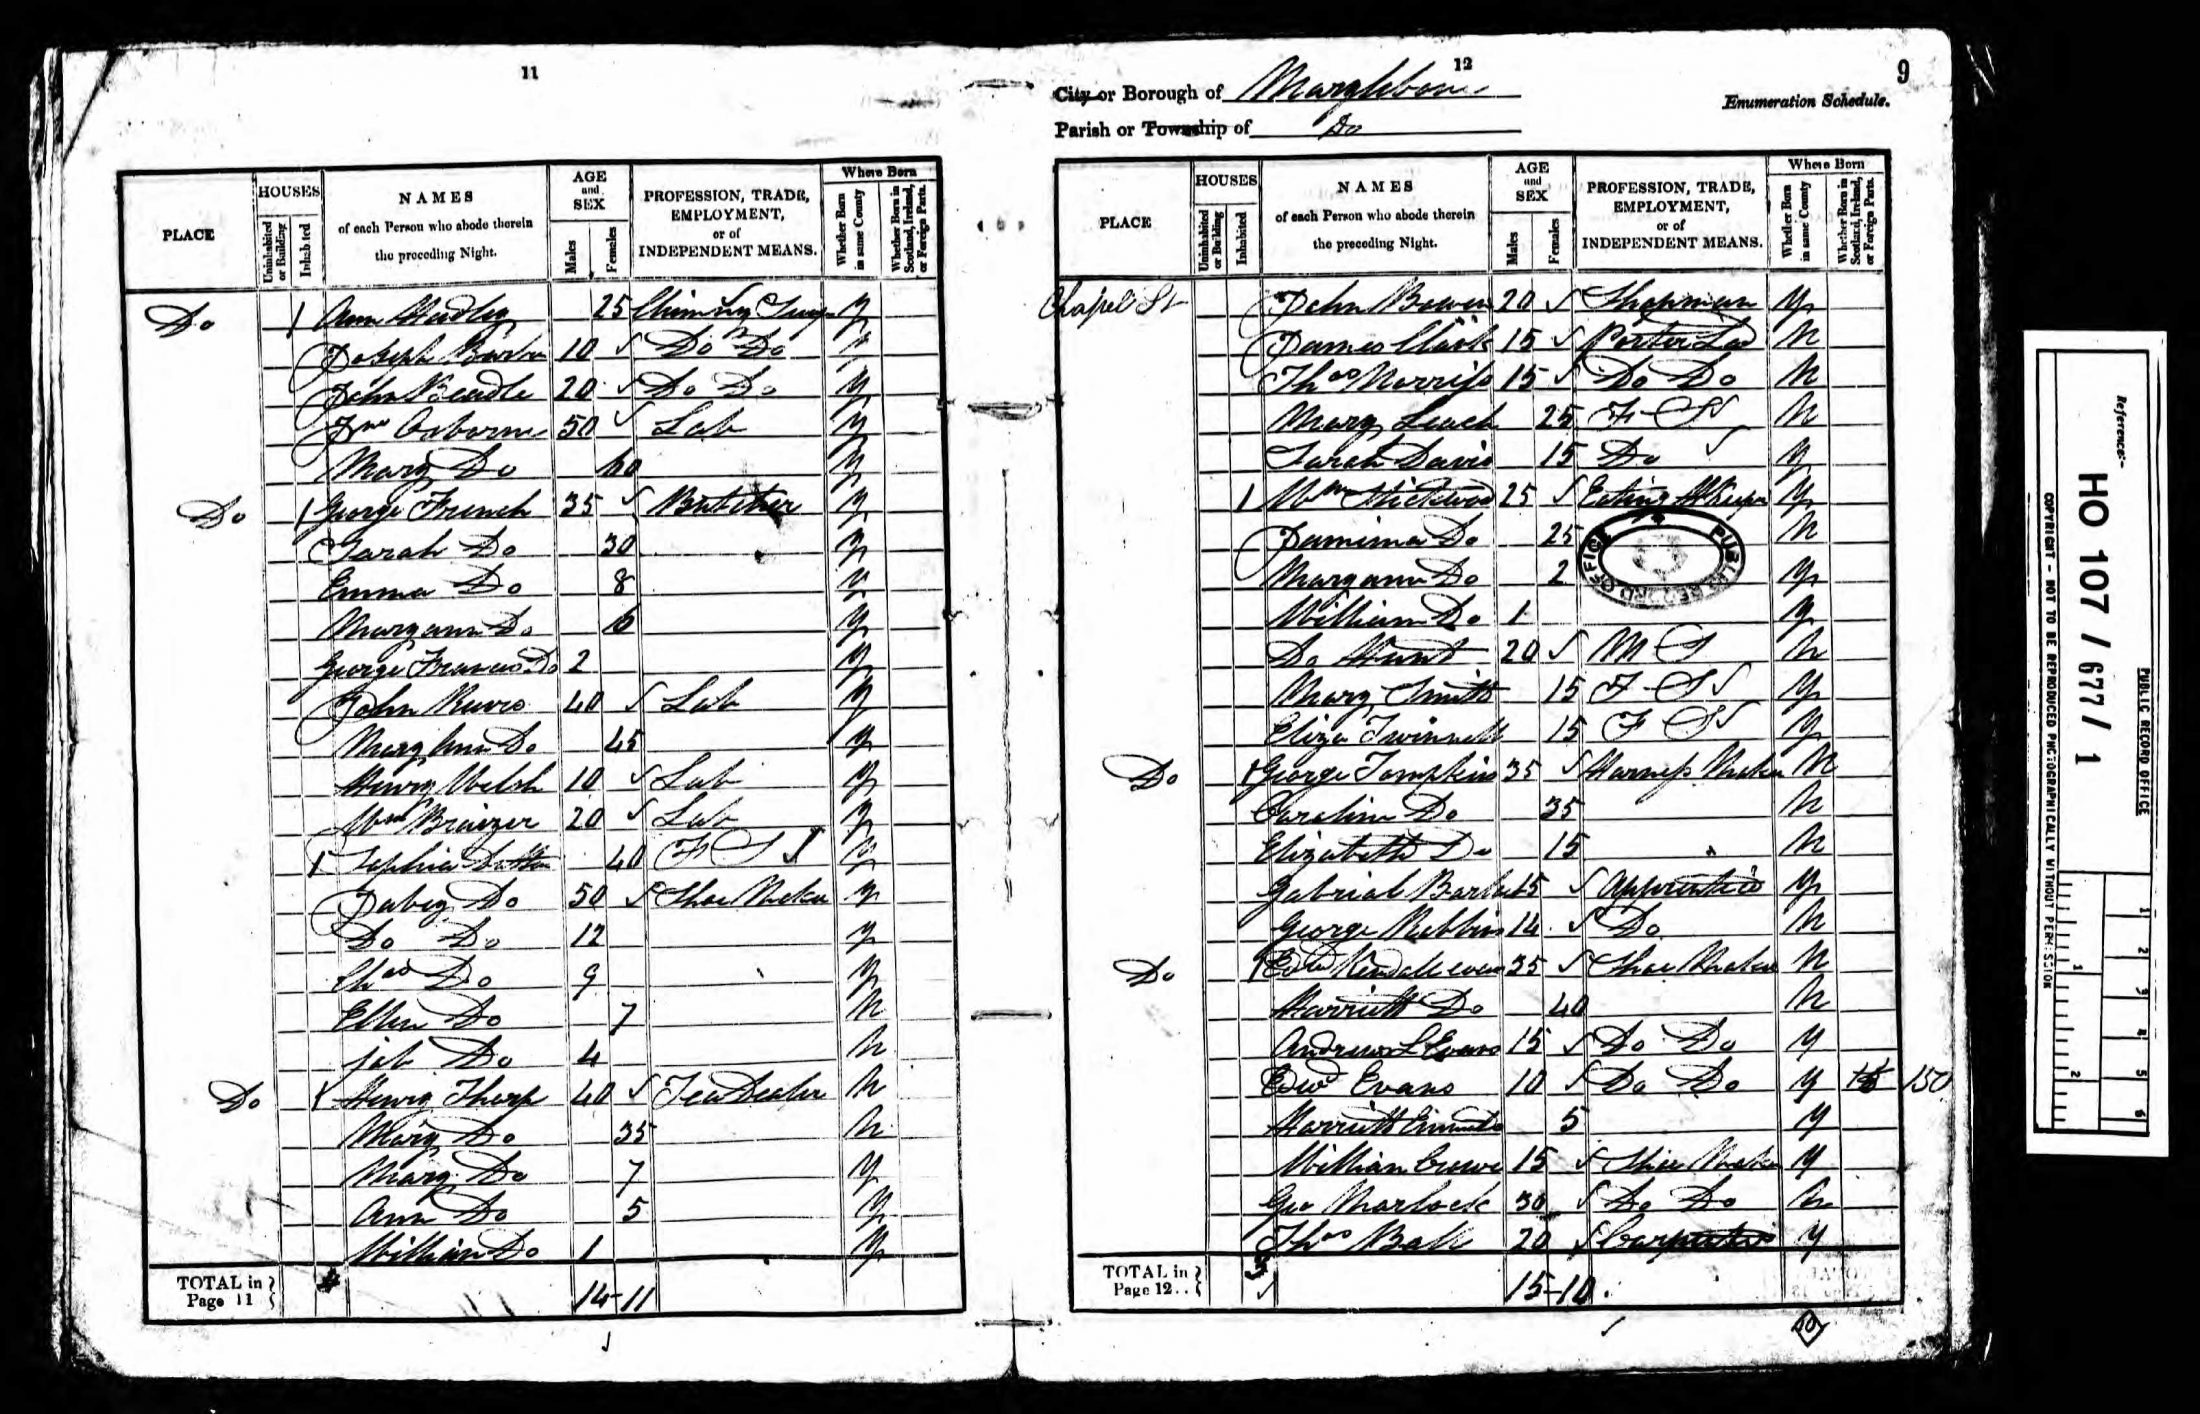 11
PLACE
HOUSES
Uninhabited or Building
Inhabited
NAMES
of each Person who abode therein
the preceding Night.
AGE and SEX
Males
Females
PROFESSION, TRADE, EMPLOYMENT, or of INDEPENDENT MEANS.
Where Born
Whether Born in same County
Whether Born in Scotland, Ireland, or Foreign Parts.
Do 1 Ann 25 Chimney y
Joseph 10 Do Do y
John Beadle 20 Do Do y
Jno Osborne 50 Lab y
Mary Do 60 y
Do 1 George French 35 Butcher y
Sarah Do 30 y
Emma Do 8 y
Maryann Do 6 y
George Frances Do 2 y
John Reeves 40 Lab y
Mary Ann Do 45 y
Henry Welsh 10 Lab y
Wm Braizer 20 Lab y
1 Sophia 40 F S y
Do 50 Shoe Maker y
Do Do 12 y
Chas Do 9 y
Ellen Do 7 N
job Do 4 N
Do 1 Henry Thorp 40 Tea Dealer N
Mary Do 35 N
Mary Do 7 y
Ann Do 5 y
William Do 1 y
TOTAL in Page 11 14-11
12
9
City or Borough of Marylebone
Enumeration Schedule.
Parish or Township of Do
PLACE
HOUSES
Uninhabited or Building
Inhabited
NAMES
of each Person who abode therein
the preceding Night.
AGE and SEX
Males
Females
PROFESSION, TRADE, EMPLOYMENT, or of INDEPENDENT MEANS.
Where Born
Whether Born in same County
Whether Born in Scotland, Ireland, or Foreign Parts.
Chapel St John Bowen 20 Shopman y
James Clark 15 Porter Lad N
Thos Norriss 15 Do Do N
Mary Leach 25 F S N
Sarah Davis 15 Do y
1 Wm 25 Eating H Keeper y
Jamima Do 25 N
Maryann Do 2 y
William Do 1 y
Do Hunt 20 M S N
Mary Smith 15 F S y
Eliza Twinnell 15 F S y
Do 1 George Tompkins 35 Harness Maker N
Caroline Do 35 N
Elizabeth Do 15 N
Gabrial 15 Apprentice y
George Robbins 14 Do N
Do 1 Edw Kendall 35 Shoe Maker N
Harriett Do 40 N
Andrew L Evans 15 Do Do y
Edwd Evans 10 Do Do y 150
Harriett Do 5 y
William Crowe 15 Shoe Maker y
Geo Marlock 30 Do Do N
Thos Ball 20 Carpenter y
TOTAL in Page 12 15-10
PUBLIC RECORD OFFICE
Reference:-
HO 107 / 677 / 1
PUBLIC RECORD OFFICE
COPYRIGHT - NOT TO BE REPRODUCED PHOTOGRAPHICALLY WITHOUT PERMISSION
1 2
1 2 3 4 5 6